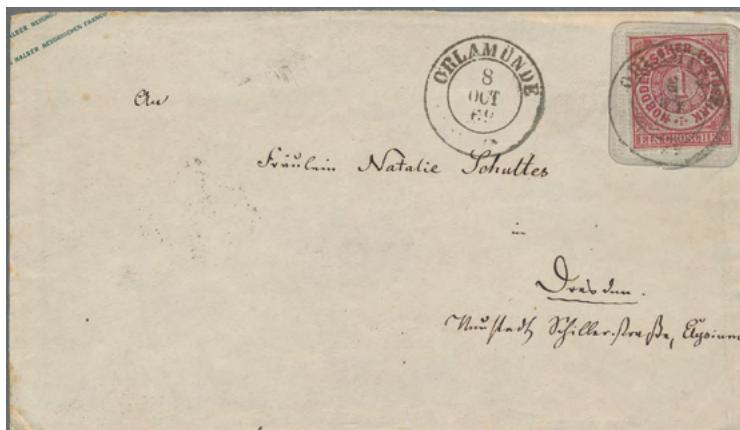 ORLAMÜNDE
8
OCT
69
NORDDEUTSCHER POSTBEZIRK
1
EIN GROSCHEN
An
Fräulein Natalie Schultes
in
Dresden.
Neustadt Schiller-straße,